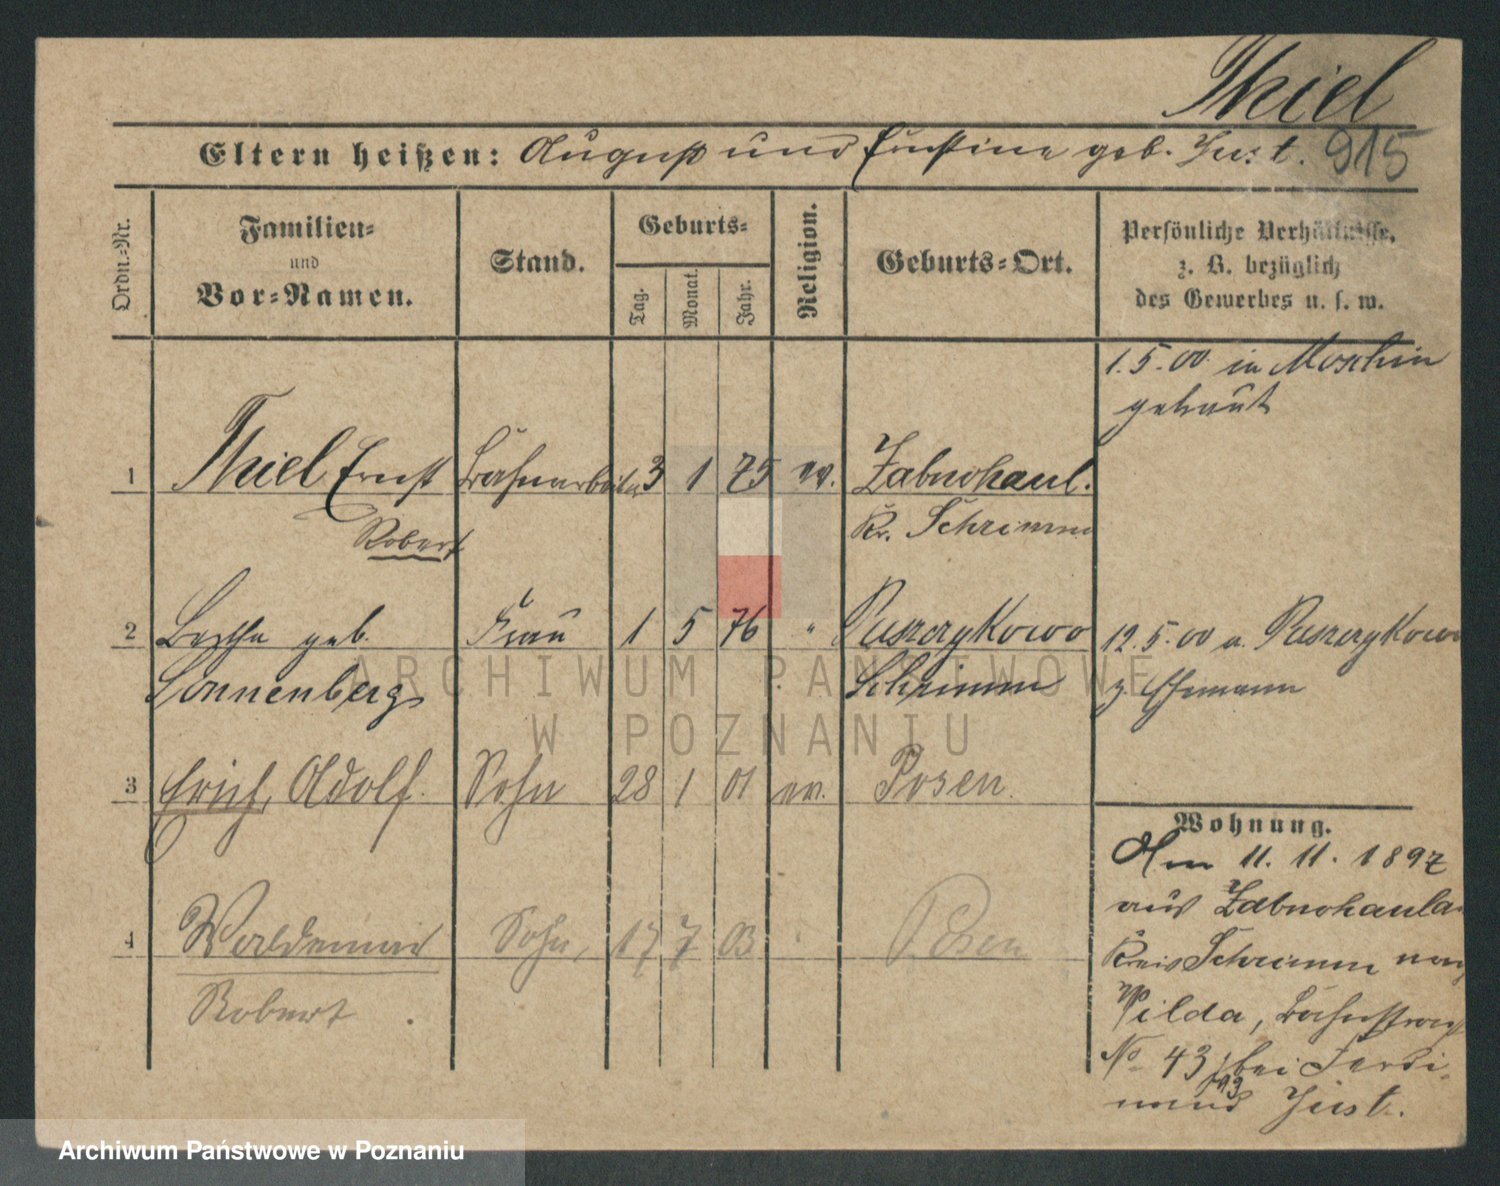 Thiel
Eltern heißen: August und Ernstine geb. Just. 915
Ordn.-Nr.
Familien-
und
Vor-Namen.
Stand.
Geburts-
Tag.
Monat.
Jahr.
Religion.
Geburts-Ort.
Persönliche Verhältnisse,
z. B. bezüglich
des Gewerbes u. s. w.
1.5.00 in Moschin
getraut
1 Thiel Ernst Bahnarbeiter 3 1 75 ev. Zabnohaul.
Robert Kr. Schrimm
2 Bertha geb. Frau 1 5 76 " Puszczykowo 12.5.00 a. Puszczykowo
Sonnenberg Schrimm z Ehemann
3 Erich, Adolf. Sohn 28 1 01 ev. Posen.
4 Waldemar Sohn, 17 7 03 Posen
Robert.
Wohnung.
Am 11.11.1897
aus Zabnohaula
Kreis Schrimm nach
Wilda, Bahnstraße
No 43 bei Ferdi-
93
nand Just.
ARCHIWUM PAŃSTWOWE
W POZNANIU
Archiwum Państwowe w Poznaniu